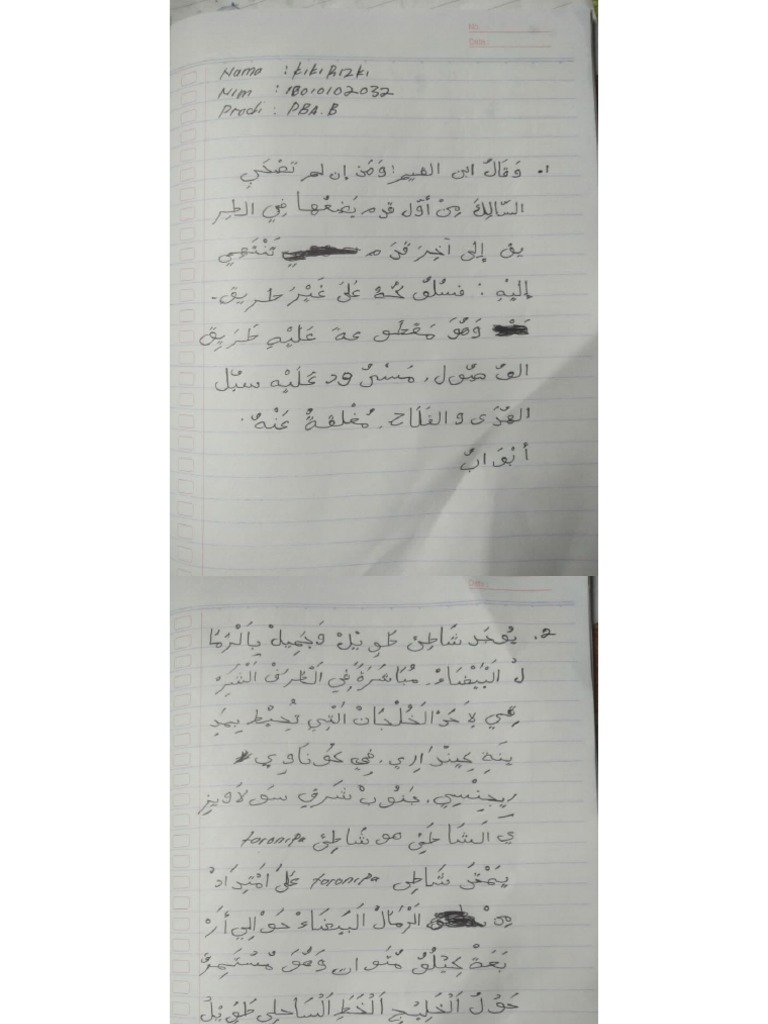 NO.
Date:
Nama : KiKi Rizki
Nim : 18010102032
Prodi : PBA.B
1. وَقَالُ ابن القيم: وَمَن إن لم تصْحَبِ
السّالِكَ مِنْ أوّل قدم يَضعُها فِي الطرِ
يق إلى آخِرَ قَدَم تَنْتَهِي
إليْهِ : فسُلُوْ كُهُ عَلىَ غَيْرَ طريق.
وَهُوَ مَقطُو عة عَليْهِ طَرَيِق
مَسْدُ ود عَلَيْه سبُل
الهُدَى و الفَلَاح. مُغْلقةٌ عَنْهُ.
أبْوَابُ
Date:
2. يُوْجَد شَاطِئْ طَوِيْلْ وَجَمِيلْ بِاَلْرِمَا
لْ اَلْبَيْضَاءْ. مُبَاشَرَةً فِي اَلْطَرَفْ اَلْشَرْ
قِي لِأَحَدْ اَلْخُلْجَانْ اَلَّتِي تُحِيْط بِمَدِ
يْنَةِ كِينْدَارِي. فِي كُونَاوِي
رِيجِنْسِي. جَنُوبْ شَرْقِي سولَاوِيزِ
ي اَلشَاطِئ هو شَاطِئ toronipa
يَمْتَدّ شَاطِى toronipa عَلَىَ اَمْتِدَادْ
مِنْ اَلْرِمَالْ اَلْبَيضَاءْ حَوَالِي أَرْ
بَعَةْ كِيْلُوْ مْتَوَات وَهُوَ مُسْتَمِرٌ
حَوْلْ اَلْخَلِيْج اَلْخَطِ اَلْسَاحِلِى طَوِيْلْ